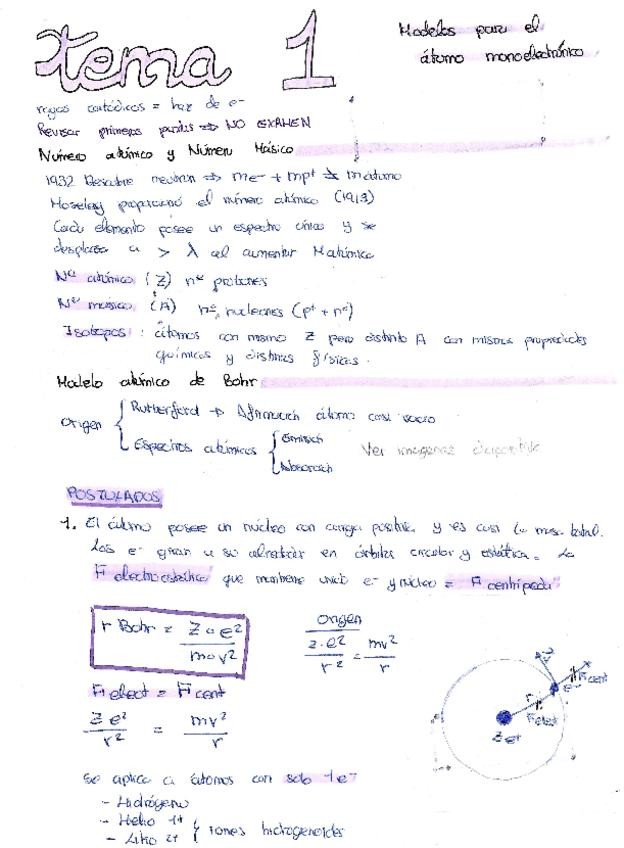 tema 1
Modelos para el
átomo monoelectrónico
rayos catódicos = haz de e-
Revisar primeros puntos => NO EXAMEN
Número atómico y Número Másico
1932 Descubre neutrón => me- + mp+ ≠ mátomo
Moseley proporcionó el número atómico (1913)
Cada elemento posee un espectro único y se
desplaza a > λ al aumentar M atómica
Nº atómico (Z) nº protones
Nº másico (A) nº nucleones (p+ + nº)
Isótopos: átomos con mismo Z pero distinto A con mismas propiedades
químicas y distintas físicas.
Modelo atómico de Bohr
Origen { Rutherford → Afirmación átomo casi vacío
Espectros atómicos { Emisión
Absorción
Ver imágenes diapositiva
POSTULADOS
1. El átomo posee un núcleo con carga positiva y es casi la masa total.
Los e- giran a su alrededor en órbita circular y estática. La
F electrostática que mantiene unido e- y núcleo = F centrípeta
r Bohr = Z·e² / m·v²
Origen
Z·e² / r² = mv² / r
F elect = F cent
Z e² / r² = mv² / r
v
F cent
e-
r
F elect
Ze+
Se aplica a átomos con solo 1e-
- Hidrógeno
- Helio 1+
- Litio 2+ } iones hidrogenoides